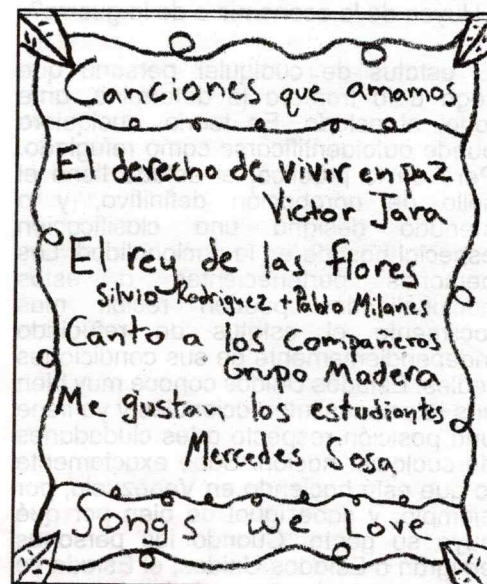 Canciones que amamos
El derecho de vivir en paz
Victor Jara
El rey de las flores
Silvio Rodriguez + Pablo Milanes
Canto a los Compañeros
Grupo Madera
Me gustan los estudiantes
Mercedes Sosa
Songs we love